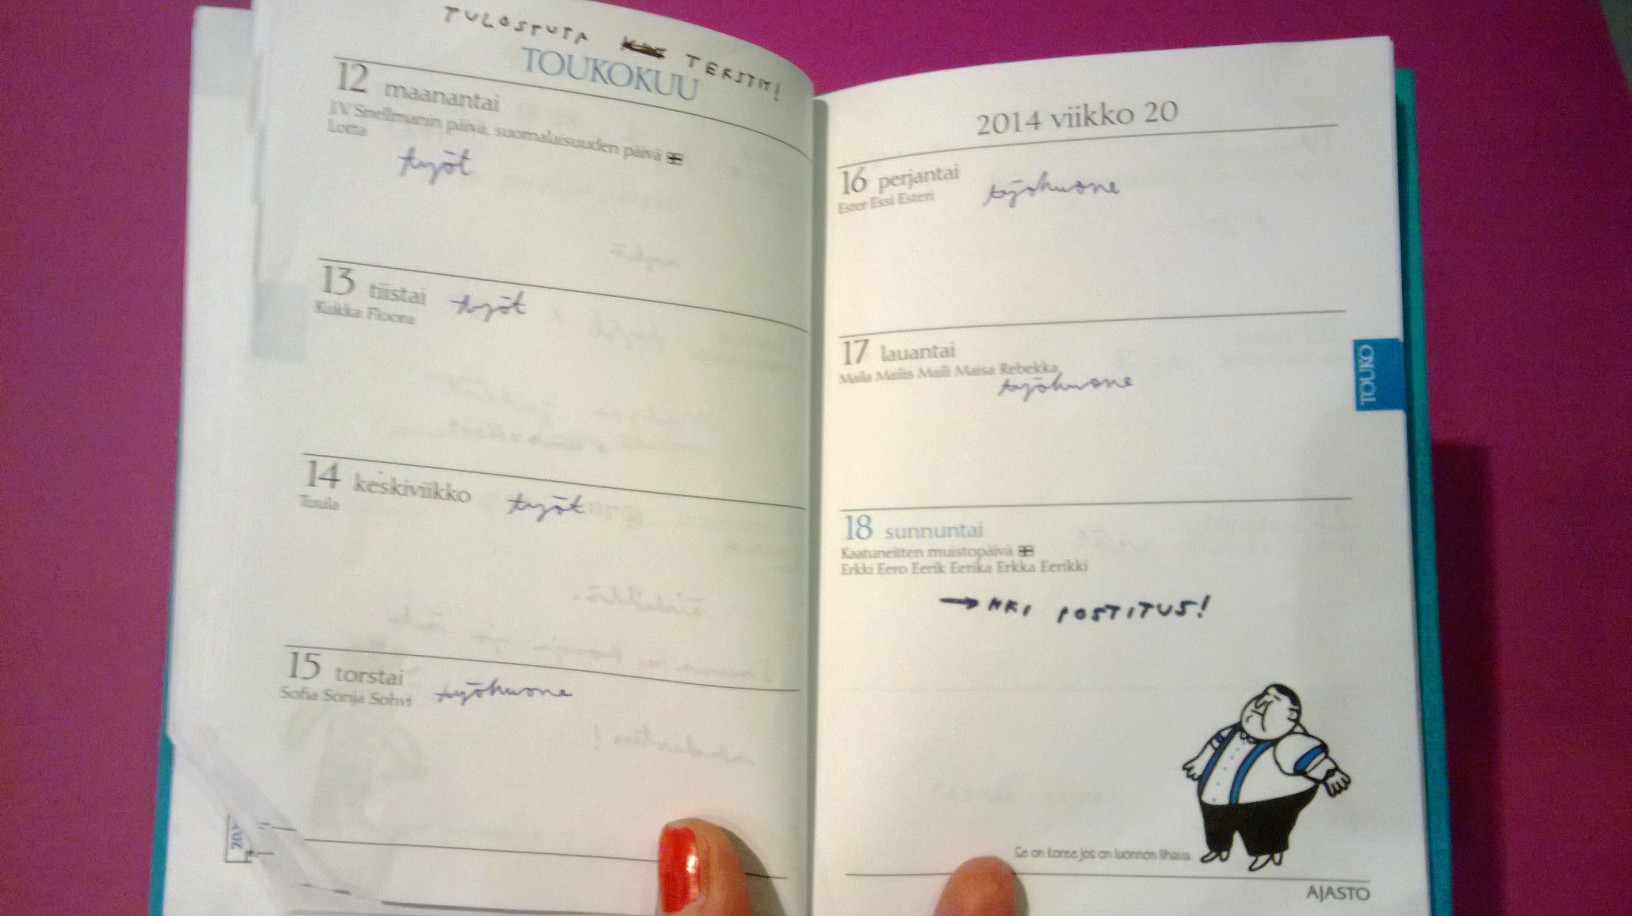 TULOSTUTA TEKSTIT!
TOUKOKUU
12 maanantai
J.V. Snellmanin päivä, suomalaisuuden päivä
Lotta
työt
13 tiistai työt
Kukka Floora
14 keskiviikko työt
Tuula
15 torstai
Sofia Sonja Sohvi työhuone
2014 viikko 20
16 perjantai työhuone
Ester Essi Esteri
17 lauantai
Maila Mailis Maili Maisa Rebekka
työhuone
TOUKO
18 sunnuntai
Kaatuneitten muistopäivä
Erkki Eero Eerik Eerika Erkka Eerikki
→ HKI POSTITUS!
Se on koree jos on luonnon lihava
AJASTO